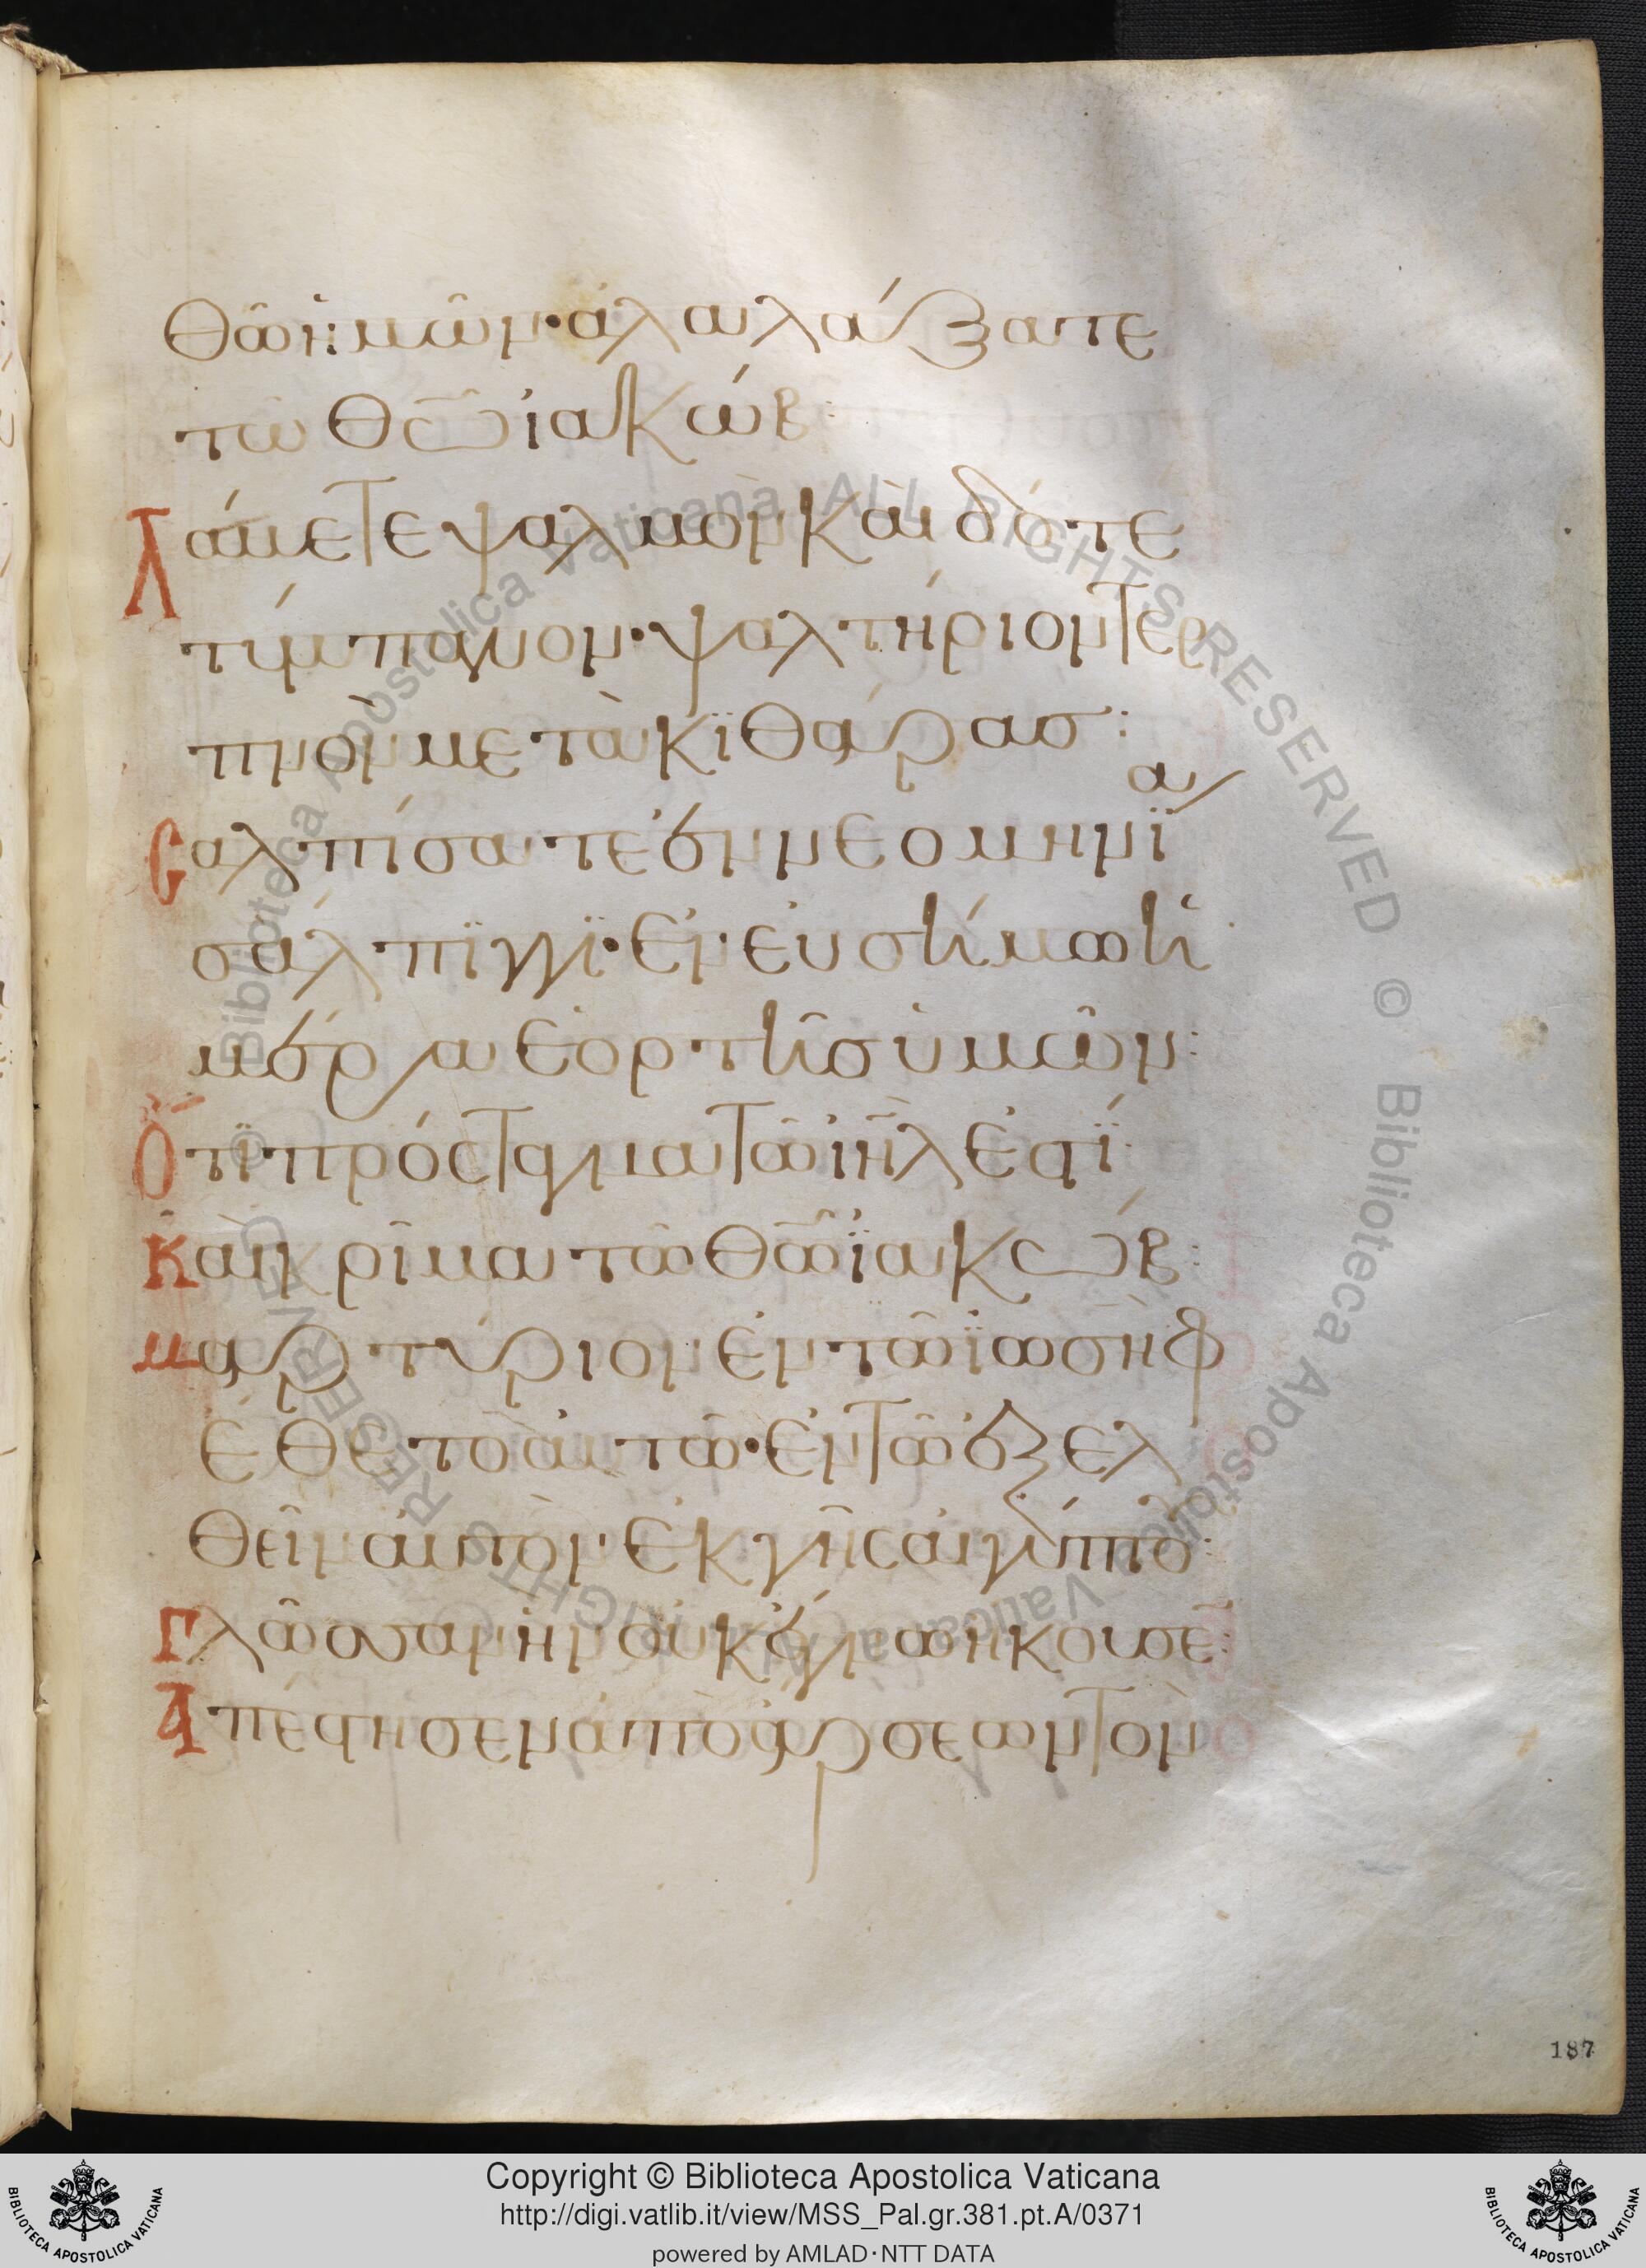 θῶ ἡμῶν· ἀλαλάξατε
τῶ θῶ ἰακώβ:
Λάμετε ψαλμὸν καὶ δότε
τύμπανον· ψαλτήριον τερ
πνὸν μετὰ κϊθάρας:
α
Σαλπίσατε ἐν νεομηνΐ
σάλπϊγγϊ· ἐν εὐσήμω ἡ
μέρα ἑορτῆς ὑμῶν:
Ὅτϊ πρόσταγμα τῶ ἰη̅λ ἐστΐ·
Καὶ κρῖμα τῶ θῶ ϊακώβ:
Μαρτύριον ἐν τῶ ϊωσὴφ
ἔθετο αὐτῶ· ἐν τῶ ἐξελ
θεῖν αὐτὸν· ἐκ γῆς αἰγύπτου:
Γλῶσσαν ἣν οὐκ ἔγνω ἤκουσε:
Ἀπέστησεν ἀπὸ ἄρσεων τὸν
187
Copyright © Biblioteca Apostolica Vaticana
http://digi.vatlib.it/view/MSS_Pal.gr.381.pt.A/0371
powered by AMLAD·NTT DATA
BIBLIOTECA APOSTOLICA VATICANA
BIBLIOTECA APOSTOLICA VATICANA
© Biblioteca Apostolica Vaticana ALL RIGHTS RESERVED © Biblioteca Apostolica Vaticana ALL RIGHTS RESERVED